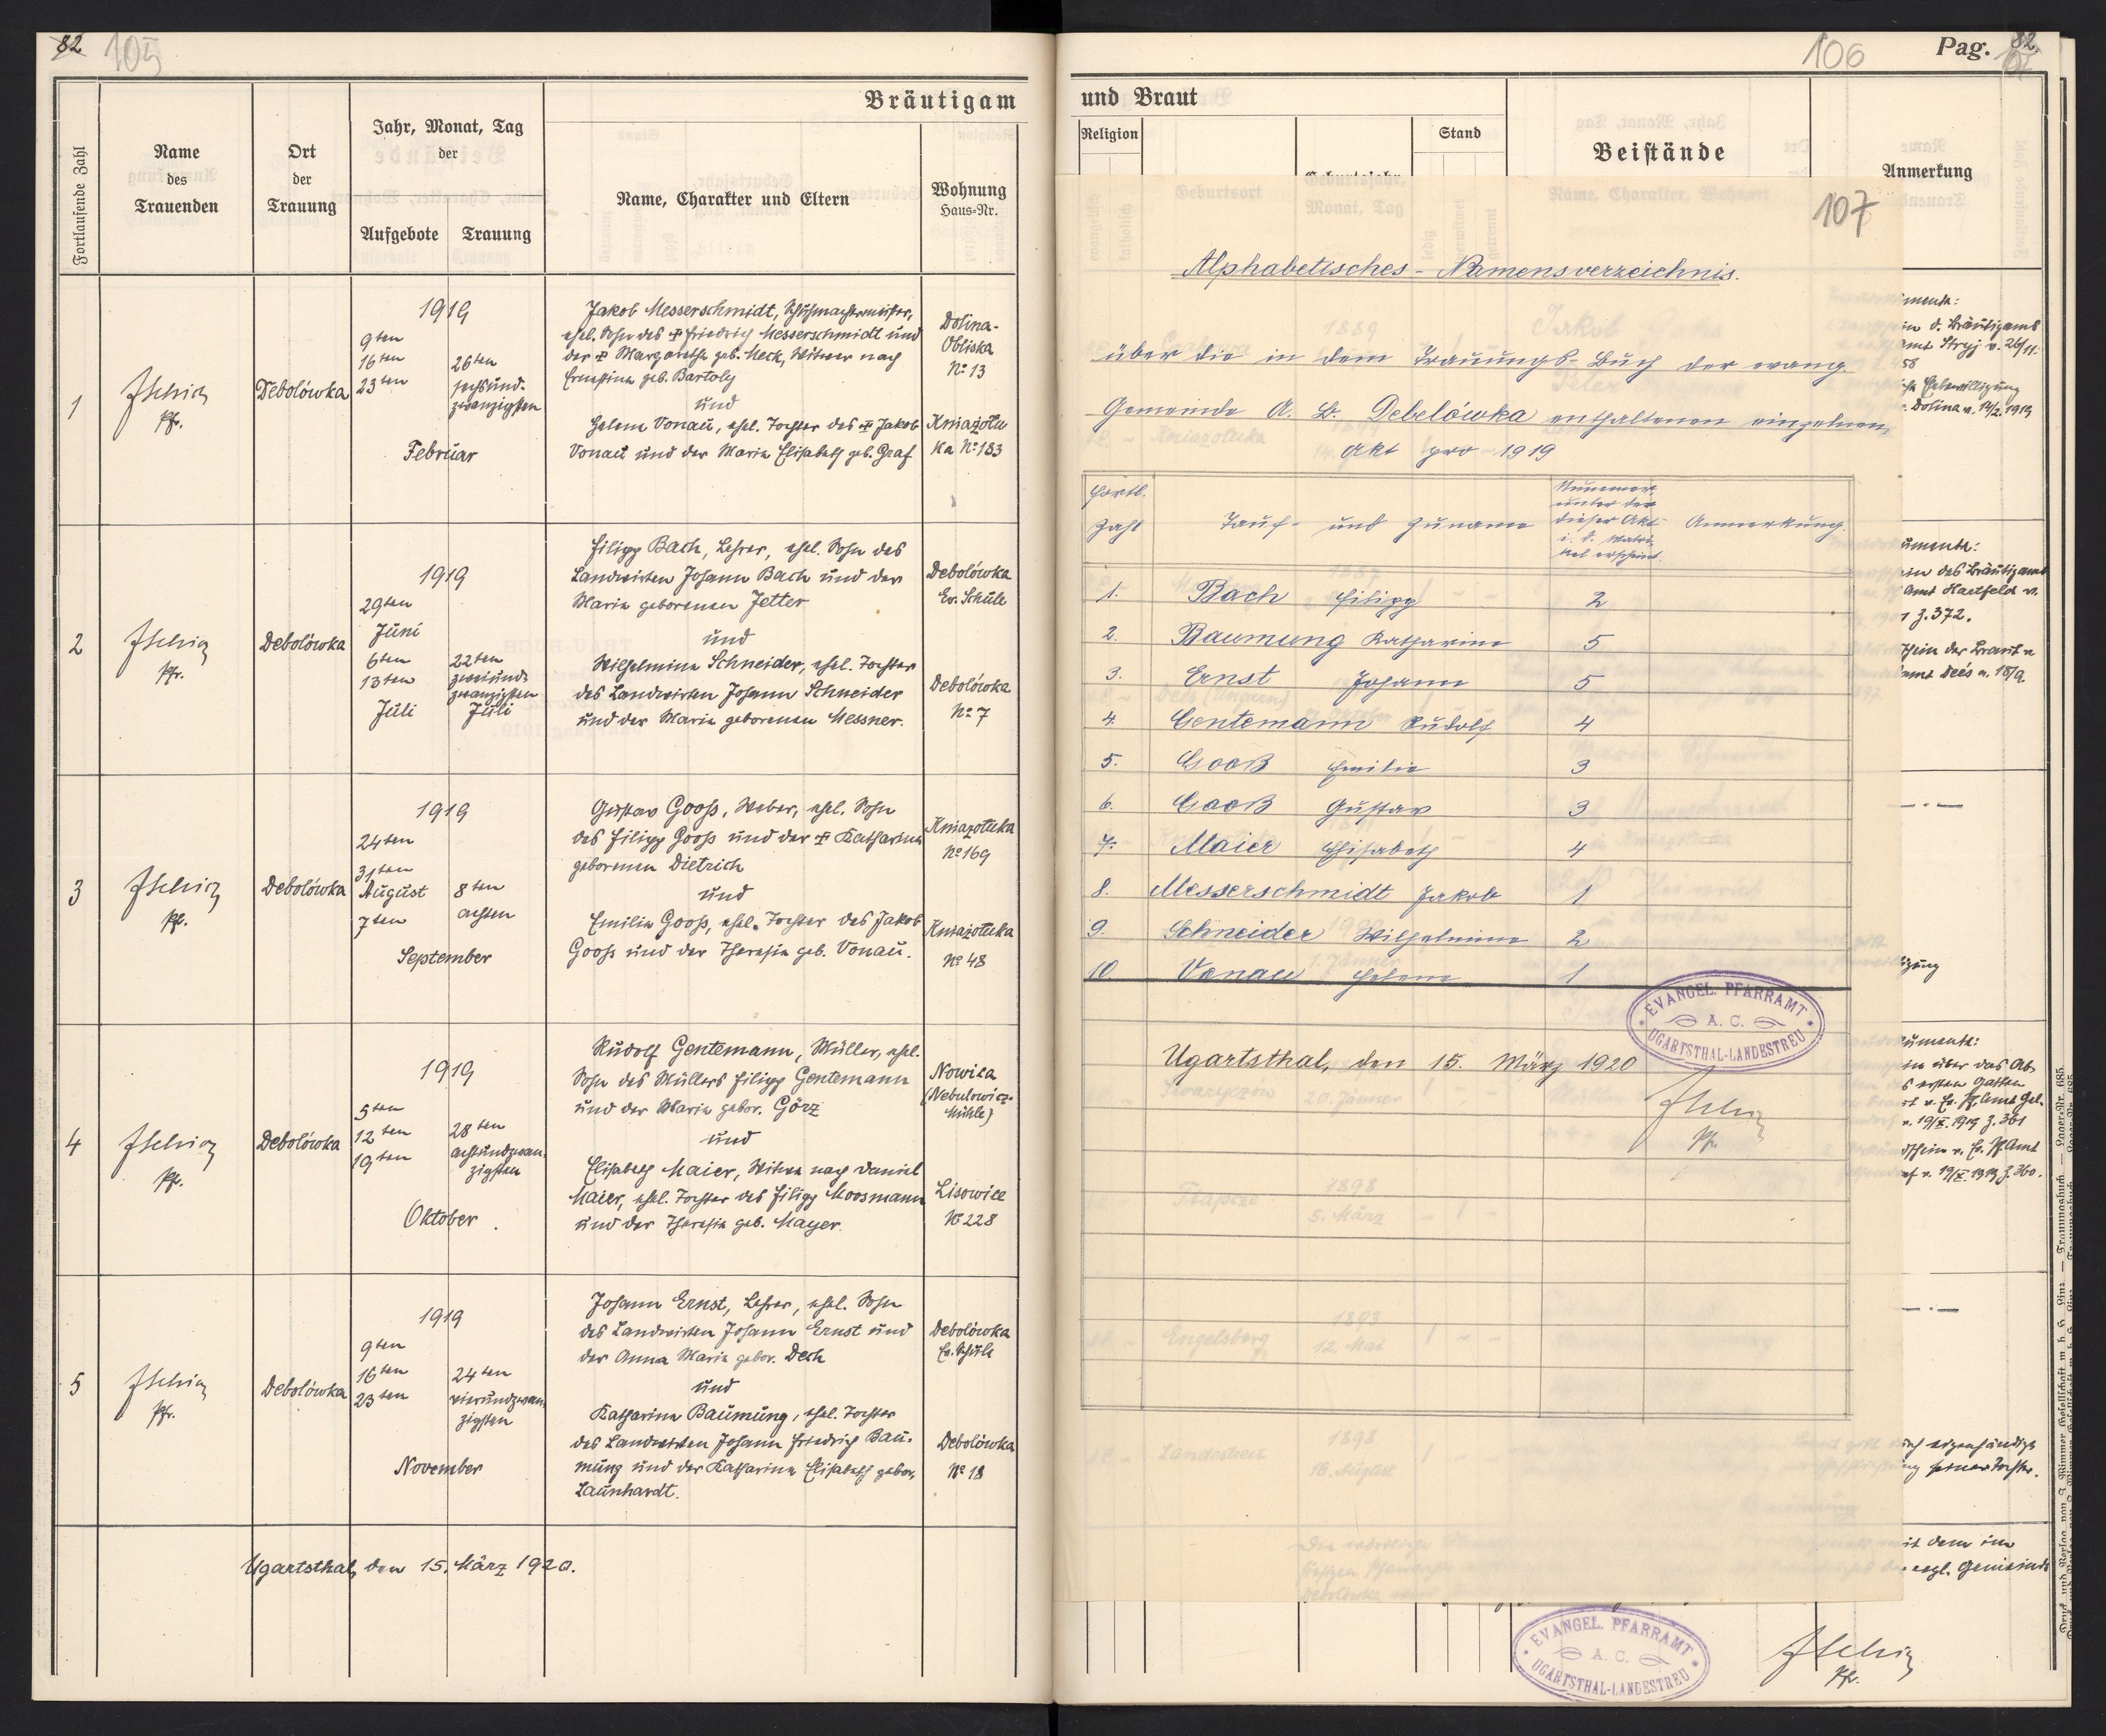 82 105
Bräutigam
Fortlaufende Zahl
Name
des
Trauenden
Ort
der
Trauung
Jahr, Monat, Tag
der
Aufgebote
Trauung
Name, Charakter und Eltern
Wohnung
Haus-Nr.
1
Pfr.
Debolówka
1919
9ten
16ten
23ten
26ten
sechsund-
zwanzigsten
Februar
Jakob Messerschmidt, Schuhmachermeister,
ehel. Sohn des ☦ Friedrich Messerschmidt und
der ☦ Margarethe geb. Meck, Witwer nach
Ernestine geb. Bartoly
und
Helene Vonau, ehel. Tochter des ☦ Jakob
Vonau und der Maria Elisabeth geb. Graf
Dolina-
Obliska
No 13
Kniazołu
ka No 183
2
Pfr.
Debolówka
1919
29ten
Juni
6ten
13ten
Juli
22ten
zweiund-
zwanzigsten
Juli
Filipp Bach, Lehrer, ehel. Sohn des
Landwirten Johann Bach und der
Maria geborenen Jetter
und
Wilhelmine Schneider, ehel. Tochter
des Landwirten Johann Schneider
und der Maria geborenen Messner.
Debolówka
Ev. Schule
Debolówka
No 7
3
Pfr.
Debolówka
1919
24ten
31ten
August
7ten
8ten
achten
September
Gustav Gooß, Weber, ehel. Sohn
des Filipp Gooß und der ☦ Katharina
geborenen Dietrich
und
Emilie Gooß, ehel. Tochter des Jakob
Gooß und der Theresia geb. Vonau.
Kniazołuka
No 169
Kniazołuka
No 48
4
Pfr.
Debolówka
1919
5ten
12ten
19ten
28ten
achtundzwan-
zigsten
Oktober
Rudolf Gentemann, Müller, ehel.
Sohn des Müllers Filipp Gentemann
und der Maria gebor. Görz
und
Elisabeth Maier, Witwe nach Daniel
Maier, ehel. Tochter des Filipp Moosmann
und der Theresia geb. Mayer.
Nowica
(Nebulowicz-
Mühle)
Lisowice
No 228
5
Pfr.
Debolówka
1919
9ten
16ten
23ten
24ten
vierundzwan-
zigsten
November
Johann Ernst, Lehrer, ehel. Sohn
des Landwirten Johann Ernst und
der Anna Maria gebor. Dech
und
Katharina Baumung, ehel. Tochter
des Landwirten Johann Friedrich Bau-
mung und der Katharina Elisabeth gebor.
Launhardt.
Debolówka
Ev. Schule
Debolówka
No 18
Ugartsthal, den 15. März 1920.
106 Pag. 82.
und Braut
Religion
Stand
Beistände
Anmerkung
107
Alphabetisches - Namensverzeichnis.
über die in dem Trauungs-Buch der evang.
Gemeinde A. B. Debelówka enthaltenen eingehen.
Akt pro 1919
Fortl.
Zahl
Tauf- und Zuname
Nummer,
unter der
dieser Akt
i. d. Matri-
kel erscheint
Anmerkung.
1. Bach Filipp 2
2. Baumung Katharina 5
3. Ernst Johann 5
4. Gentemann Rudolf 4
5. Gooß Emilie 3
6. Gooß Gustav 3
7. Maier Elisabeth 4
8. Messerschmidt Jakob 1
9. Schneider Wilhelmine 2
10. Vonau Helene 1
EVANGEL. PFARRAMT
A. C.
UGARTSTHAL-LANDESTREU
Ugartsthal, den 15. März 1920
Pfr.
EVANGEL. PFARRAMT
A. C.
UGARTSTHAL-LANDESTREU
Pfr.